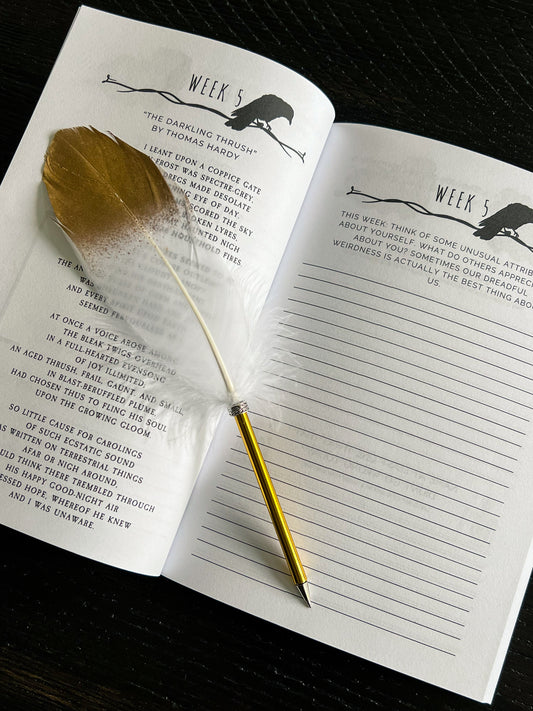 WEEK 5
"THE DARKLING THRUSH"
BY THOMAS HARDY
I LEANT UPON A COPPICE GATE
FROST WAS SPECTRE-GREY,
DREGS MADE DESOLATE
EYE OF DAY.
SCORED THE SKY
BROKEN LYRES,
HAUNTED NIGH
HOUSEHOLD FIRES.
THE AN
AND EVERY SPIRIT UPON
SEEMED
AT ONCE A VOICE AROSE AMONG
THE BLEAK TWIGS OVERHEAD
IN A FULL-HEARTED EVENSONG
OF JOY ILLIMITED
AN AGED THRUSH, FRAIL, GAUNT, AND SMALL
IN BLAST-BERUFFLED PLUME,
HAD CHOSEN THUS TO FLING HIS SOUL
UPON THE GROWING GLOOM.
SO LITTLE CAUSE FOR CAROLINGS
OF SUCH ECSTATIC SOUND
AS WRITTEN ON TERRESTRIAL THINGS
AFAR OR NIGH AROUND,
ULD THINK THERE TREMBLED THROUGH
HIS HAPPY GOOD-NIGHT AIR
ESSED HOPE, WHEREOF HE KNEW
AND I WAS UNAWARE.
WEEK 5
THIS WEEK: THINK OF SOME UNUSUAL ATTRIB
ABOUT YOURSELF. WHAT DO OTHERS APPREC
ABOUT YOU? SOMETIMES OUR DREADFUL
WEIRDNESS IS ACTUALLY THE BEST THING ABO
US.